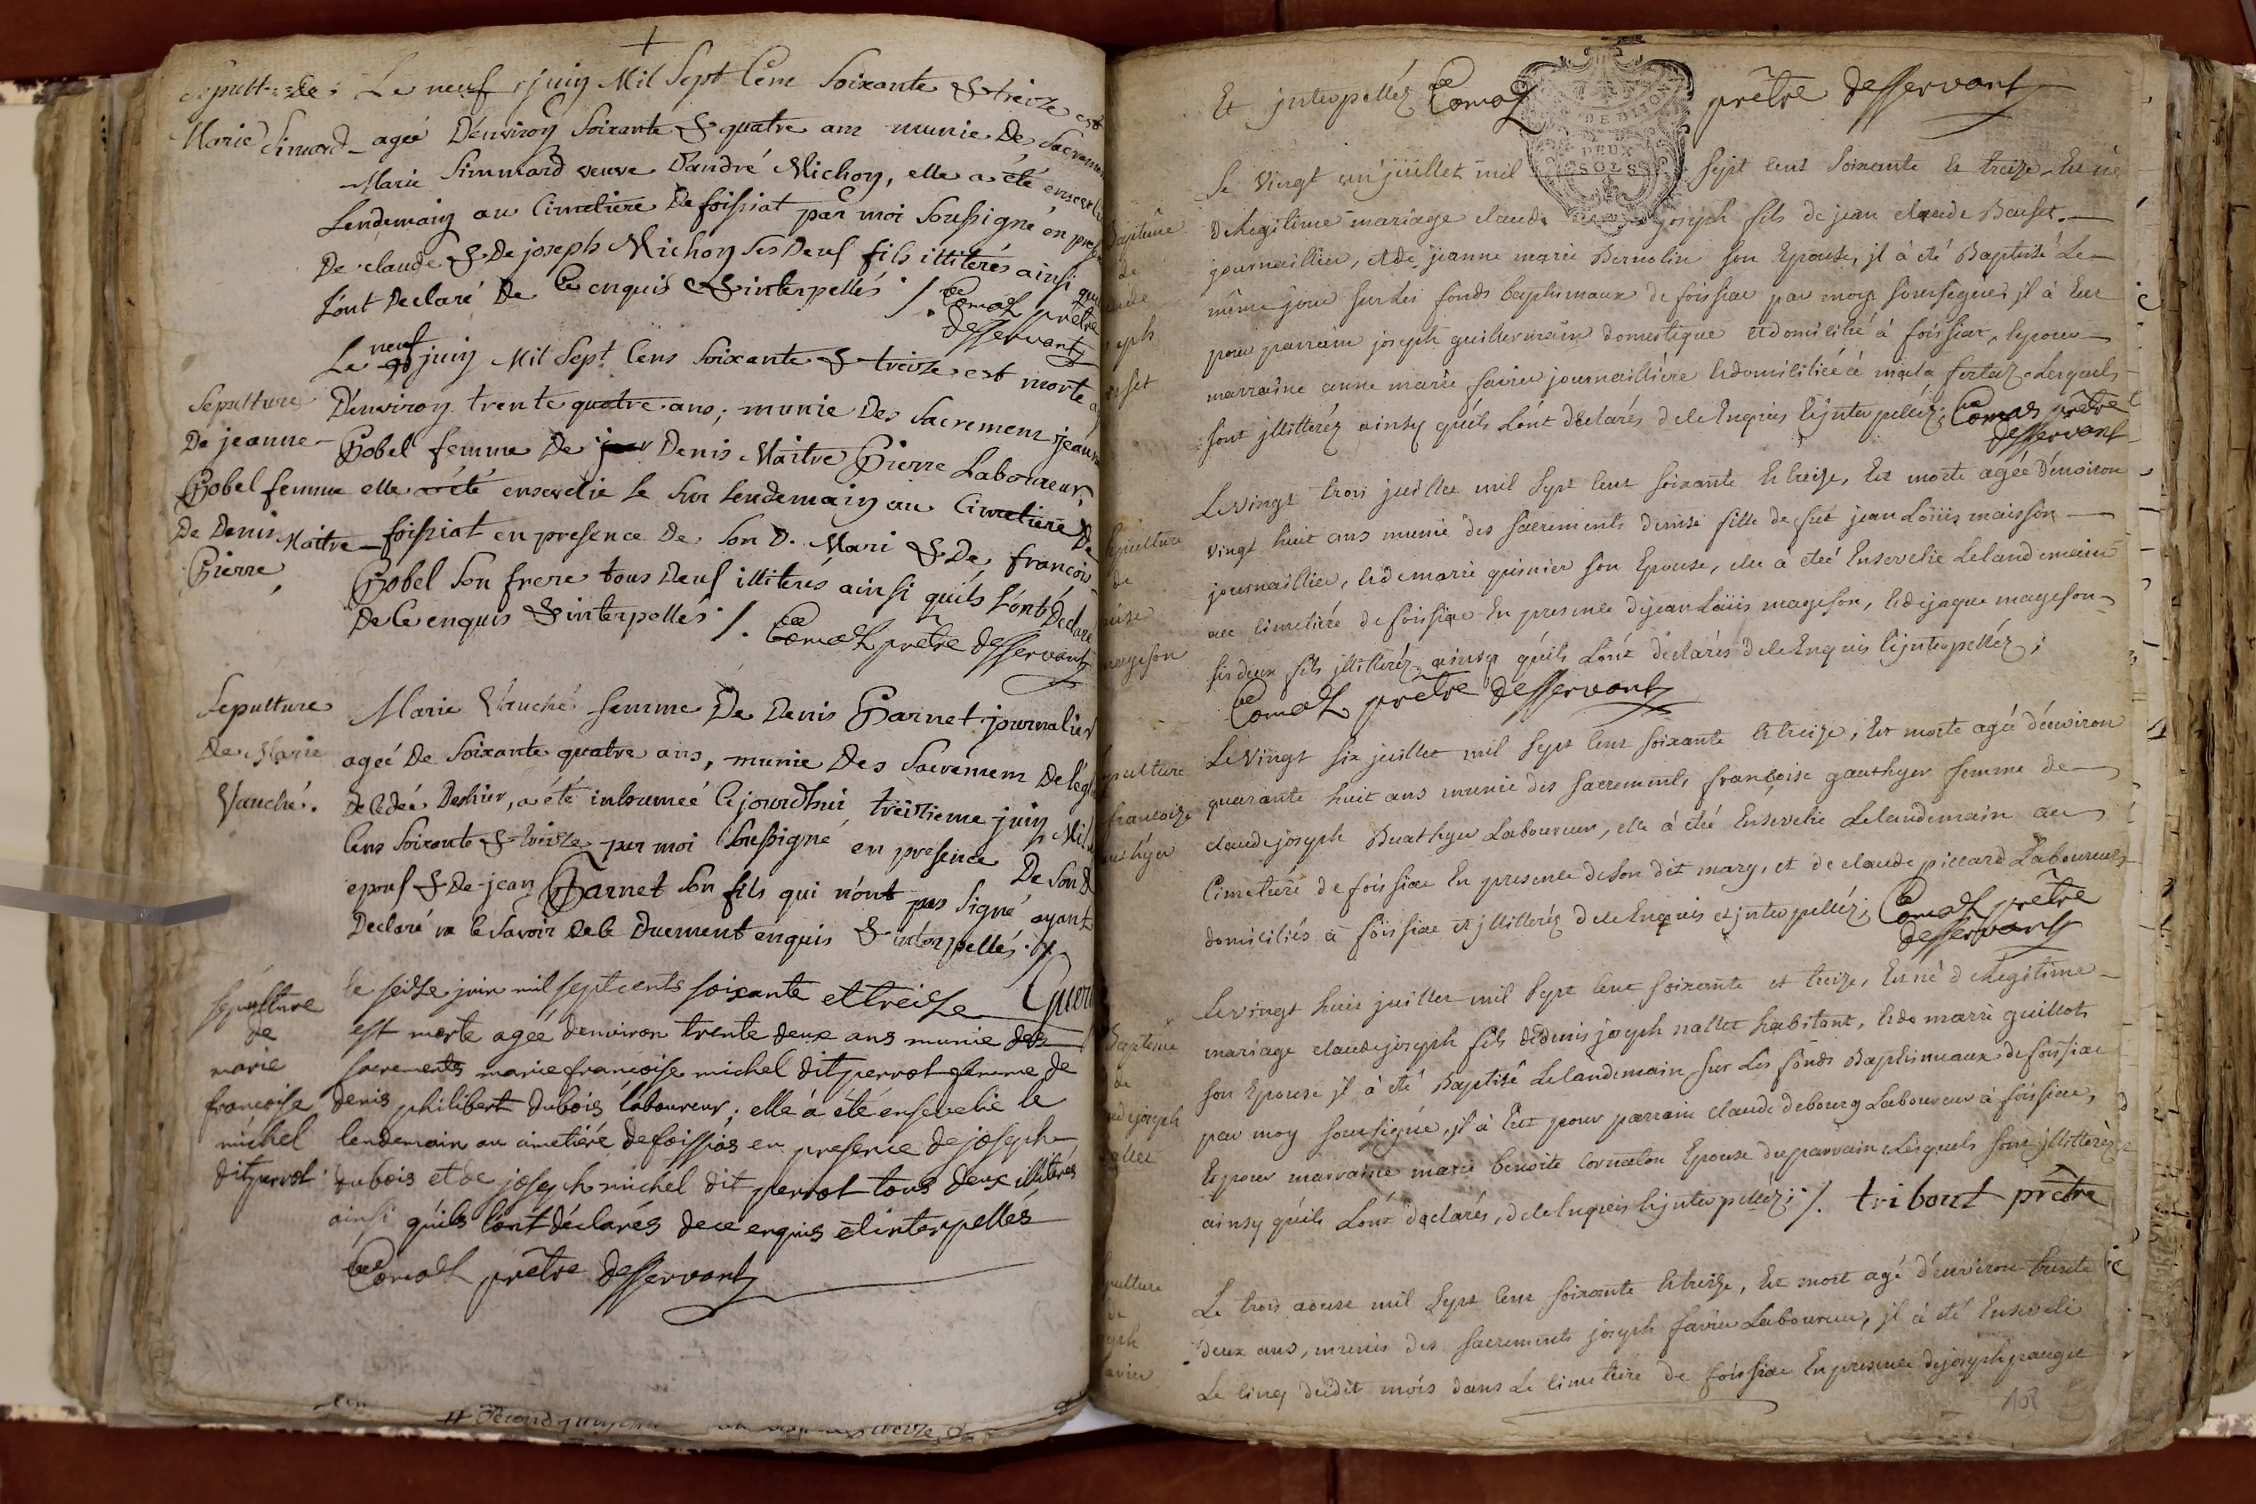 Sepulture de Le neuf juin Mil Sept Cens Soixante & treize est
Marie Simard agée D'environ Soixante & quatre ans munie Des Sacremens
Marie Simmard veuve D'andré Michon, elle a été ensevelie
Lendemain au Cimetiere De foissiat par moi Soussigné en prese
De claude & De joseph Michon Ses Deuf fils illiterés ainsi que
L'ont Declaré De Ce enquis & interpellés /. Comas prêtre
desservant
Le neuf juin Mil Sept Cens Soixante & treize est morte a
Sepulture D'environ trente quatre ans, munie Des Sacremens jeanne
De jeanne Gobel femme De Denis Maitre Pierre Laboureur,
Gobel femme elle a été ensevelie le Sur Lendemain au Cimetiere De
De Denis Maitre foissiat en presence De Son D. Mari & De françois
Pierre Gobel Son frere tous Deuf illiterés ainsi qu'ils L'ont Declaré
De Ce enquis & interpellés /. Comas prêtre desservant
Sepulture Marie Vauché femme De Denis Garnet journalier
De Marie agée De Soixante quatre ans, munie Des Sacremens De l'egl
Vauché. Decedée D'hier, a été inhumeé Ce jourdhui treizieme juin Mil
Cens Soixante & treize par moi Soussigné en presence De Son d
epouf & De jean Garnet Son fils qui n'ont pas Signé ayant
Declaré ne le Savoir De Ce Duement enquis & interpellés.
Sepulture le seize juin mil sept cents soixante et treize
de est morte agée denviron trente deux ans munie des
marie sacrements marie francoise michel dit perrot femme de
francoise denis philibert dubois laboureur; elle à été ensevelie le
michel lendemain au cimetiére de foissias en presence de joseph
dit perrot dubois et de joseph michel dit perrot tous deux illiterés
ainsi qu'ils l'ont déclarés de ce enquis et interpellés
Comas prêtre desservant
Et jnterpellés Comas prêtre desservant
DEUX
SOLS
Le vingt un juillet mil sept cent soixante et treize Est né
de Legitime mariage claude joseph fils de jean claude Bouset
journaillier, et de jeanne marie Bernolin son Epouse, jl à été Baptisé Le
même jour sur Les fonds baptismaux de foissiac par moy soussigné, jl à Eut
pour parrain joseph guillermain domestique et domicilié à foissiac, Et pour
marraine anne marie favier journaillière Et domiciliée à mala fertaz Lesquels
sont jllitteréz ainsy qu'ils L'ont déclarés de ce Enquis Et jnterpellés Comas prêtre
desservant
Le vingt trois juillet mil sept cent soixante Et treize, Est morte agée d'environ
vingt huit ans munie des sacrements denise fille de fut jean Loüis maisson
journaillier, Et de marie guinier son Epouse, elle à eteé Ensevelie Le landemain
au cimetiére de foissiac En presence de jean Loüis mageson, Et de jaque mageson
ses deux fils jllitteréz ainsy qu'ils L'ont déclarés de ce Enquis Et jnterpelléz;
Comas prêtre desservant
Le vingt six juillet mil sept cent soixante Et treize, Est morte agée d'environ
quarante huit ans munie des sacrements françoise gauthyer femme de
claude joseph Buathyer Laboureur, elle à été Ensevelie Le landemain au
Cimetiére de foissiac En presence de son dit mary, et de claude pillard Laboureurs
domiciliés à foissiac et jllitteréz de ce Enquis et jnterpellés Comas prêtre
desservant
Le vingt huit juillet mil sept cent soixante et treize, Est né de Legitime
mariage claude joseph fils de denis joseph nallet habitant, Et de marie guillot
son Epouse jl à été Baptisé Le landemain sur Les fonds Baptismaux de foissiac
par moy soussigné, jl à Eut pour parrain claude debourg Laboureur à foissiac,
Et pour marraine marie benoite cornaton Epouse du parrain Lesquels sont jllitteréz
ainsy qu'ils L'ont déclarés, de ce Enquis Et jnterpelléz; /. tribout prêtre
Le trois aoust mil sept cent soixante Et treize, Est mort agé d'environ trente
deux ans, munis des sacrements joseph favier Laboureur, jl à été Enseveli
Le cinq du dit mois dans Le cimetiére de foissiac En presence de joseph pauget